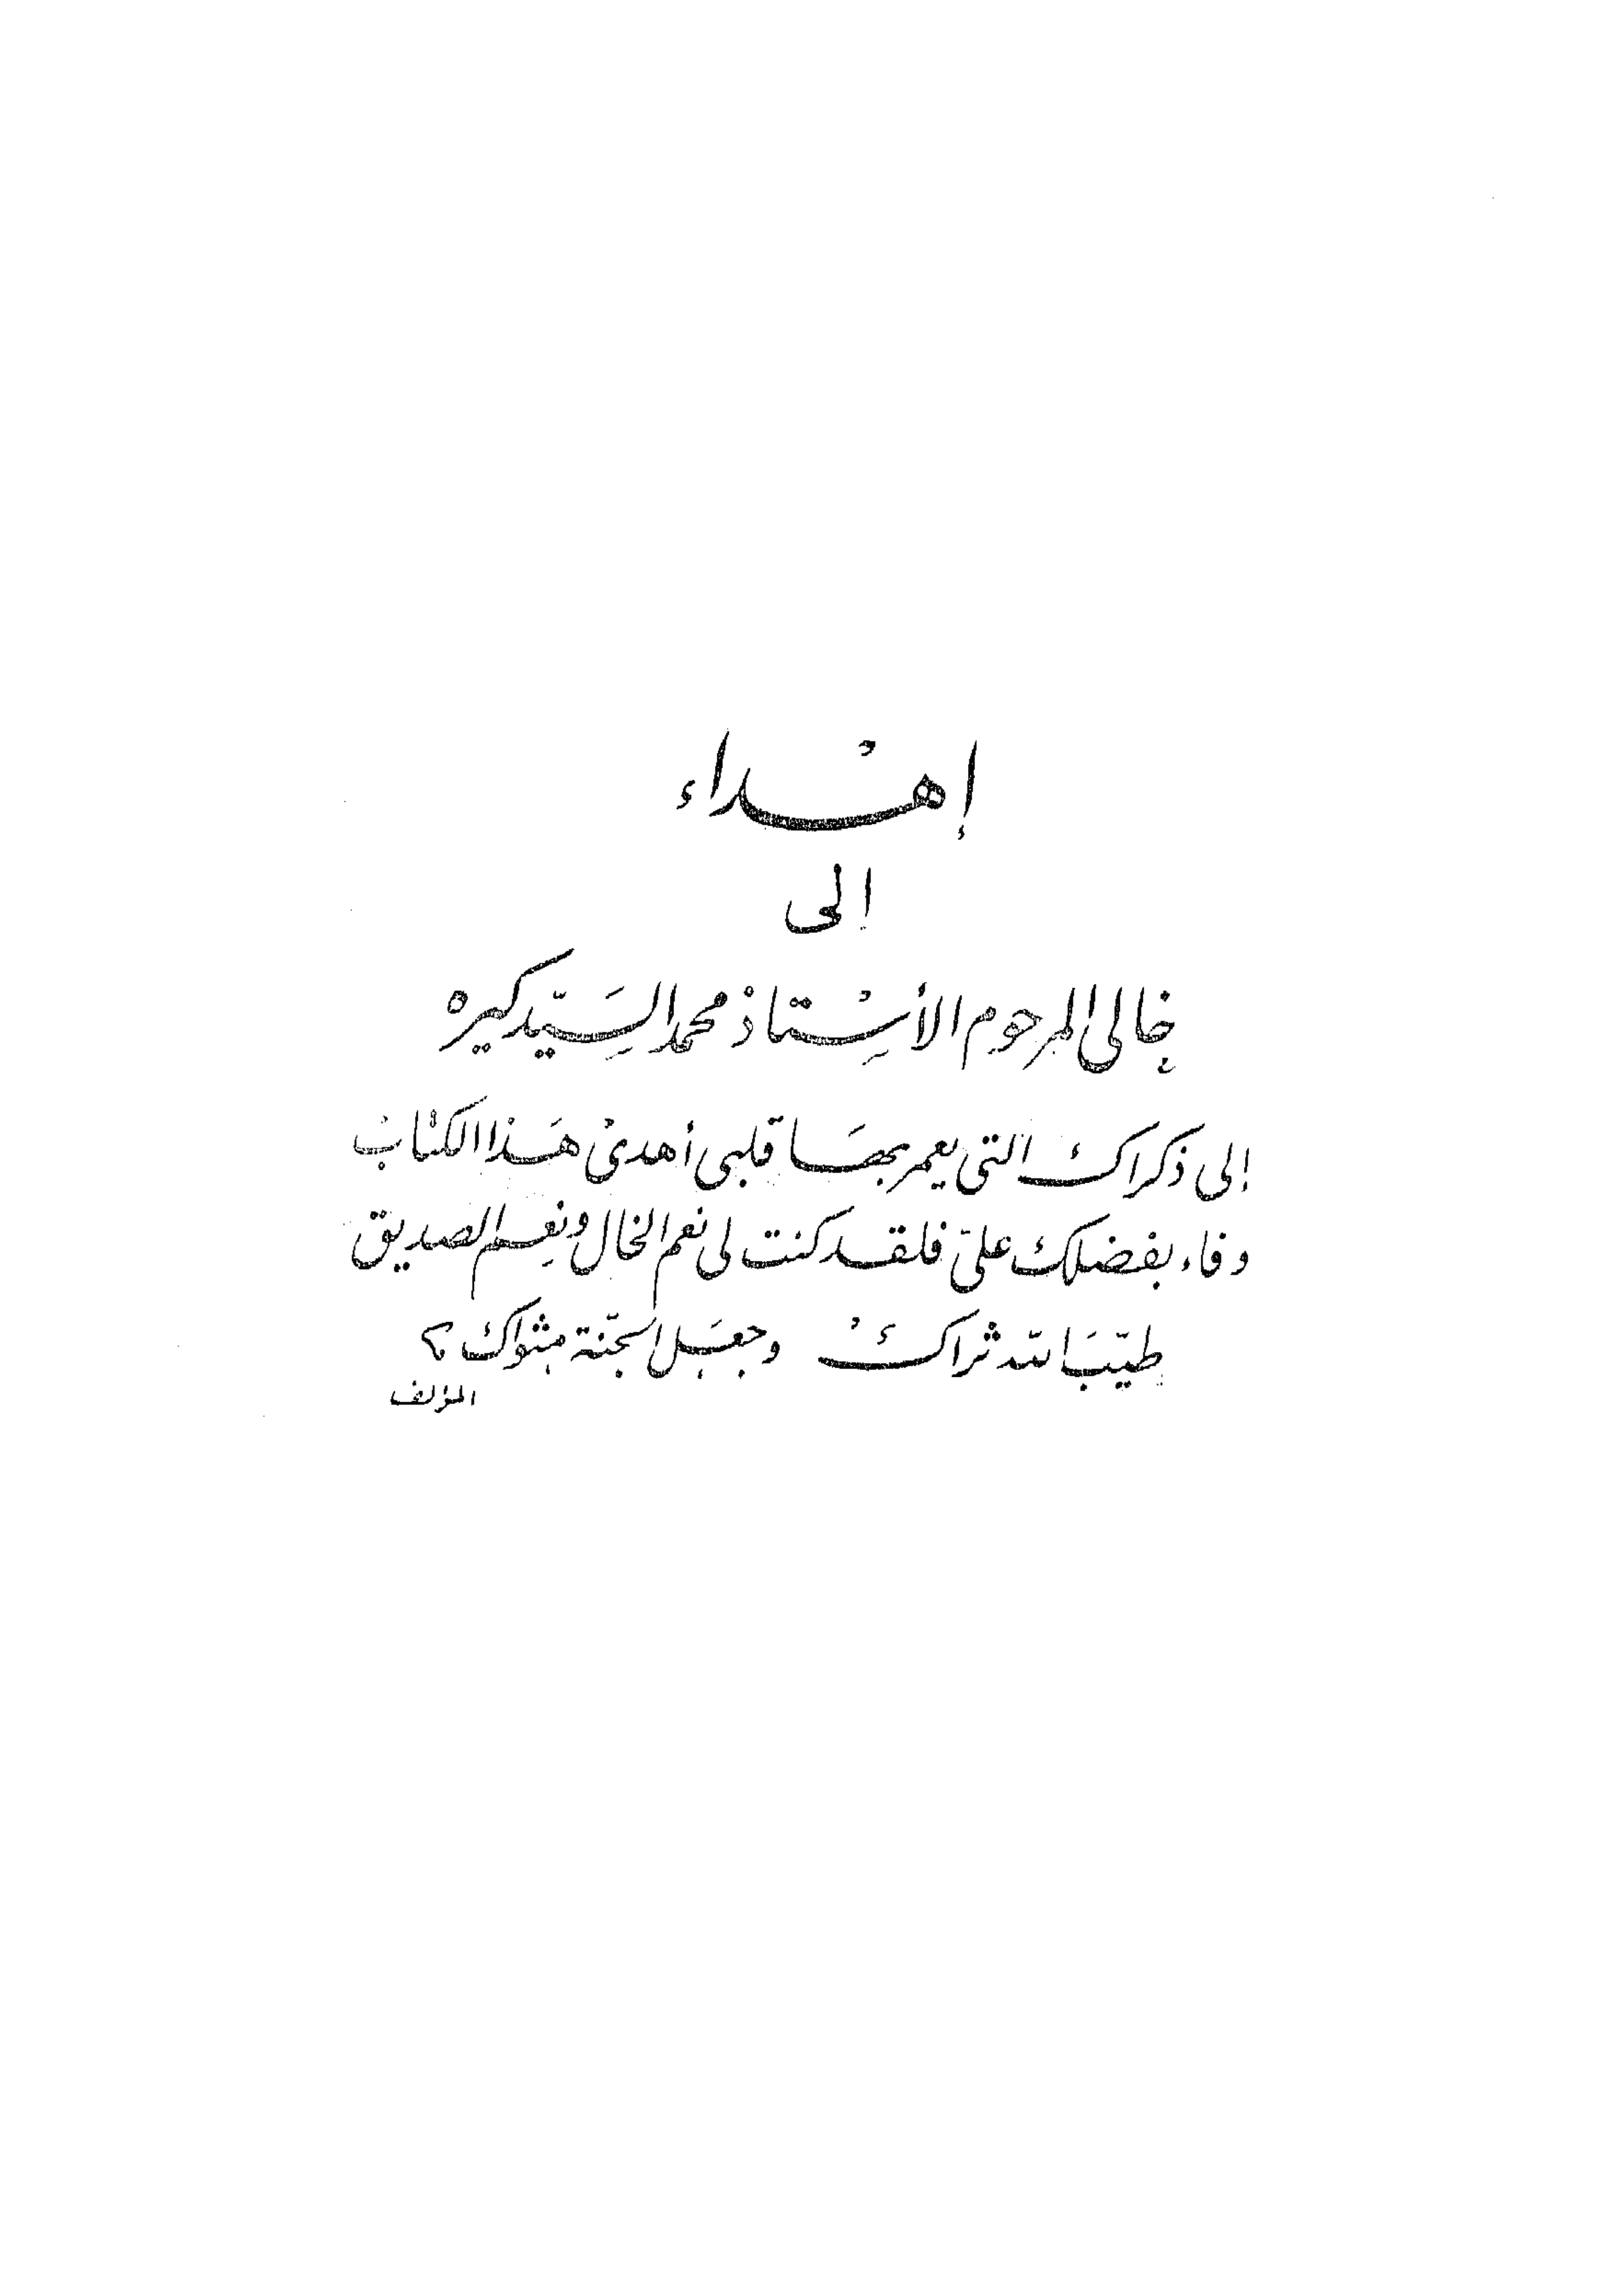 إهْداء
إلى
خالى المرحوم الأسْتاذ محمد السَيّد كيره
إلى ذكراك التى يعمر بهَا قلبى أهدى هَذا الكتاب
وفاء بفضلك علىّ فلقد كنت لى نعم الخال ونعِم الصديق
طيّبَ الله ثراك وجعَل الجنّة مثواك
المؤلف